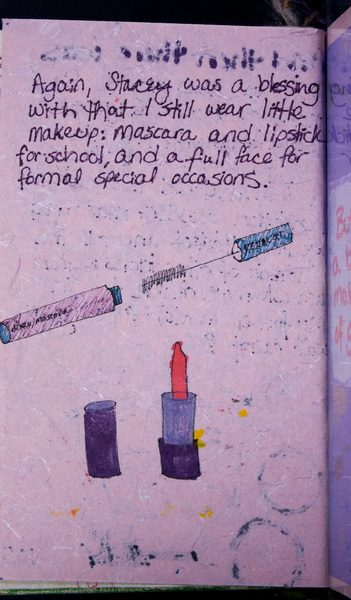 Again, Stacey was a blessing
with that. I still wear little
makeup: mascara and lipstick
for school, and a full face for
formal special occasions.